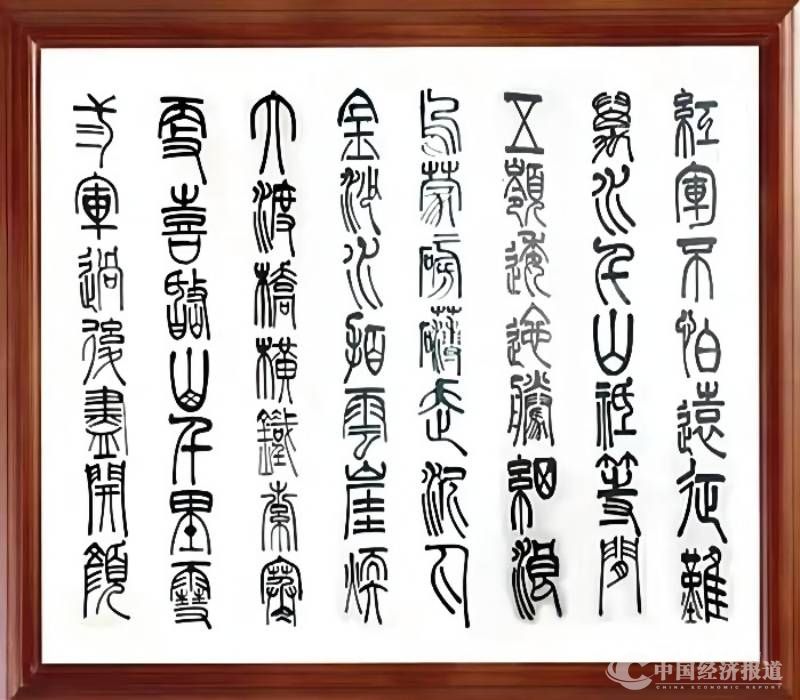 紅軍不怕遠征難
萬水千山祗等閒
五嶺逶迤騰細浪
烏蒙磅礴走泥丸
金沙水拍雲崖煖
大渡橋橫鐵索寒
更喜岷山千里雪
三軍過後盡開顏
中国经济报道
CHINA ECONOMIC REPORT